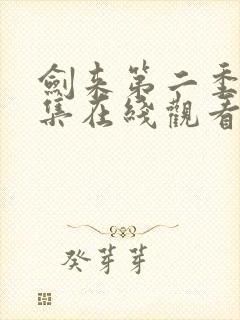 劍来第二季
集在綫觀看
癸芽芽